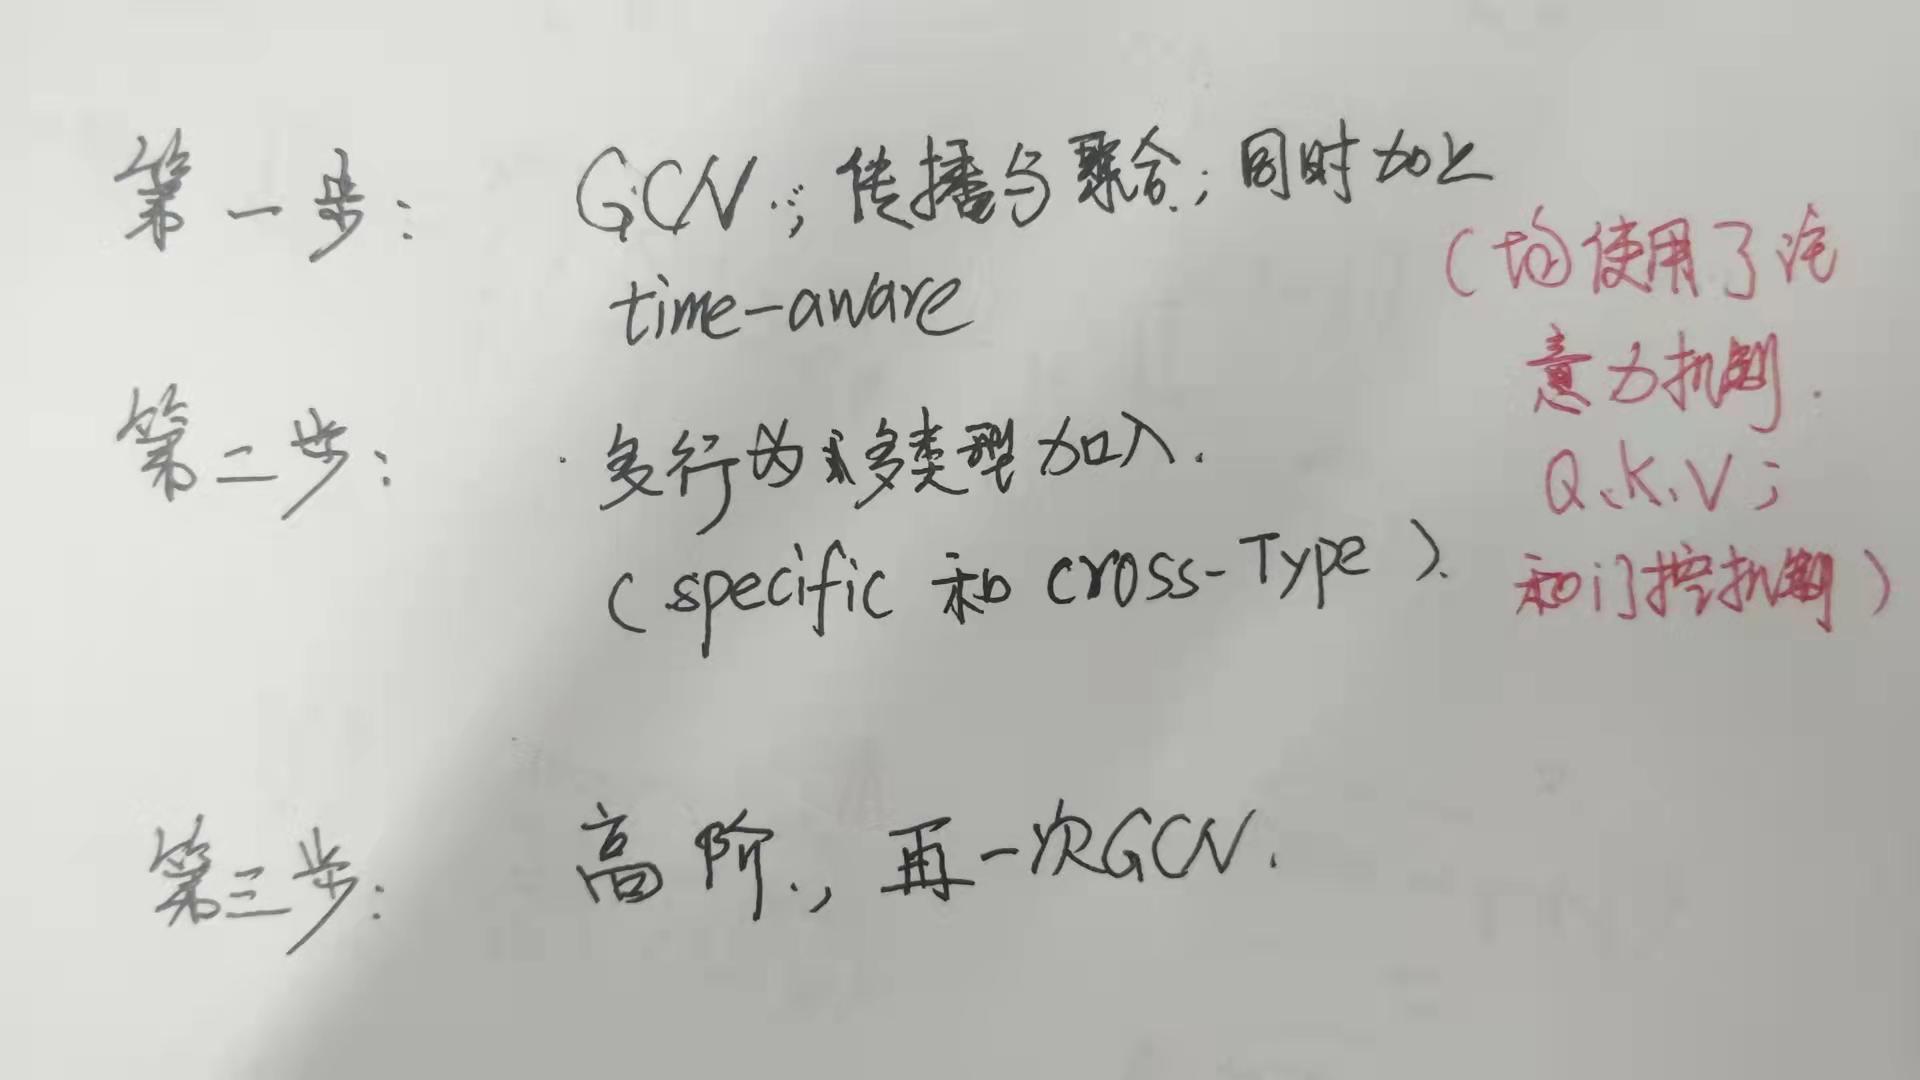 第一步: GCN.; 传播与聚合.; 同时加上
time-aware
第二步: 多行为多类型加入.
(specific 和 cross-Type).
第三步: 高阶., 再一次GCN.
(均使用了注
意力机制.
Q、K、V;
和门控机制)